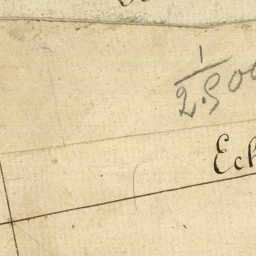 1
2.500
Eck